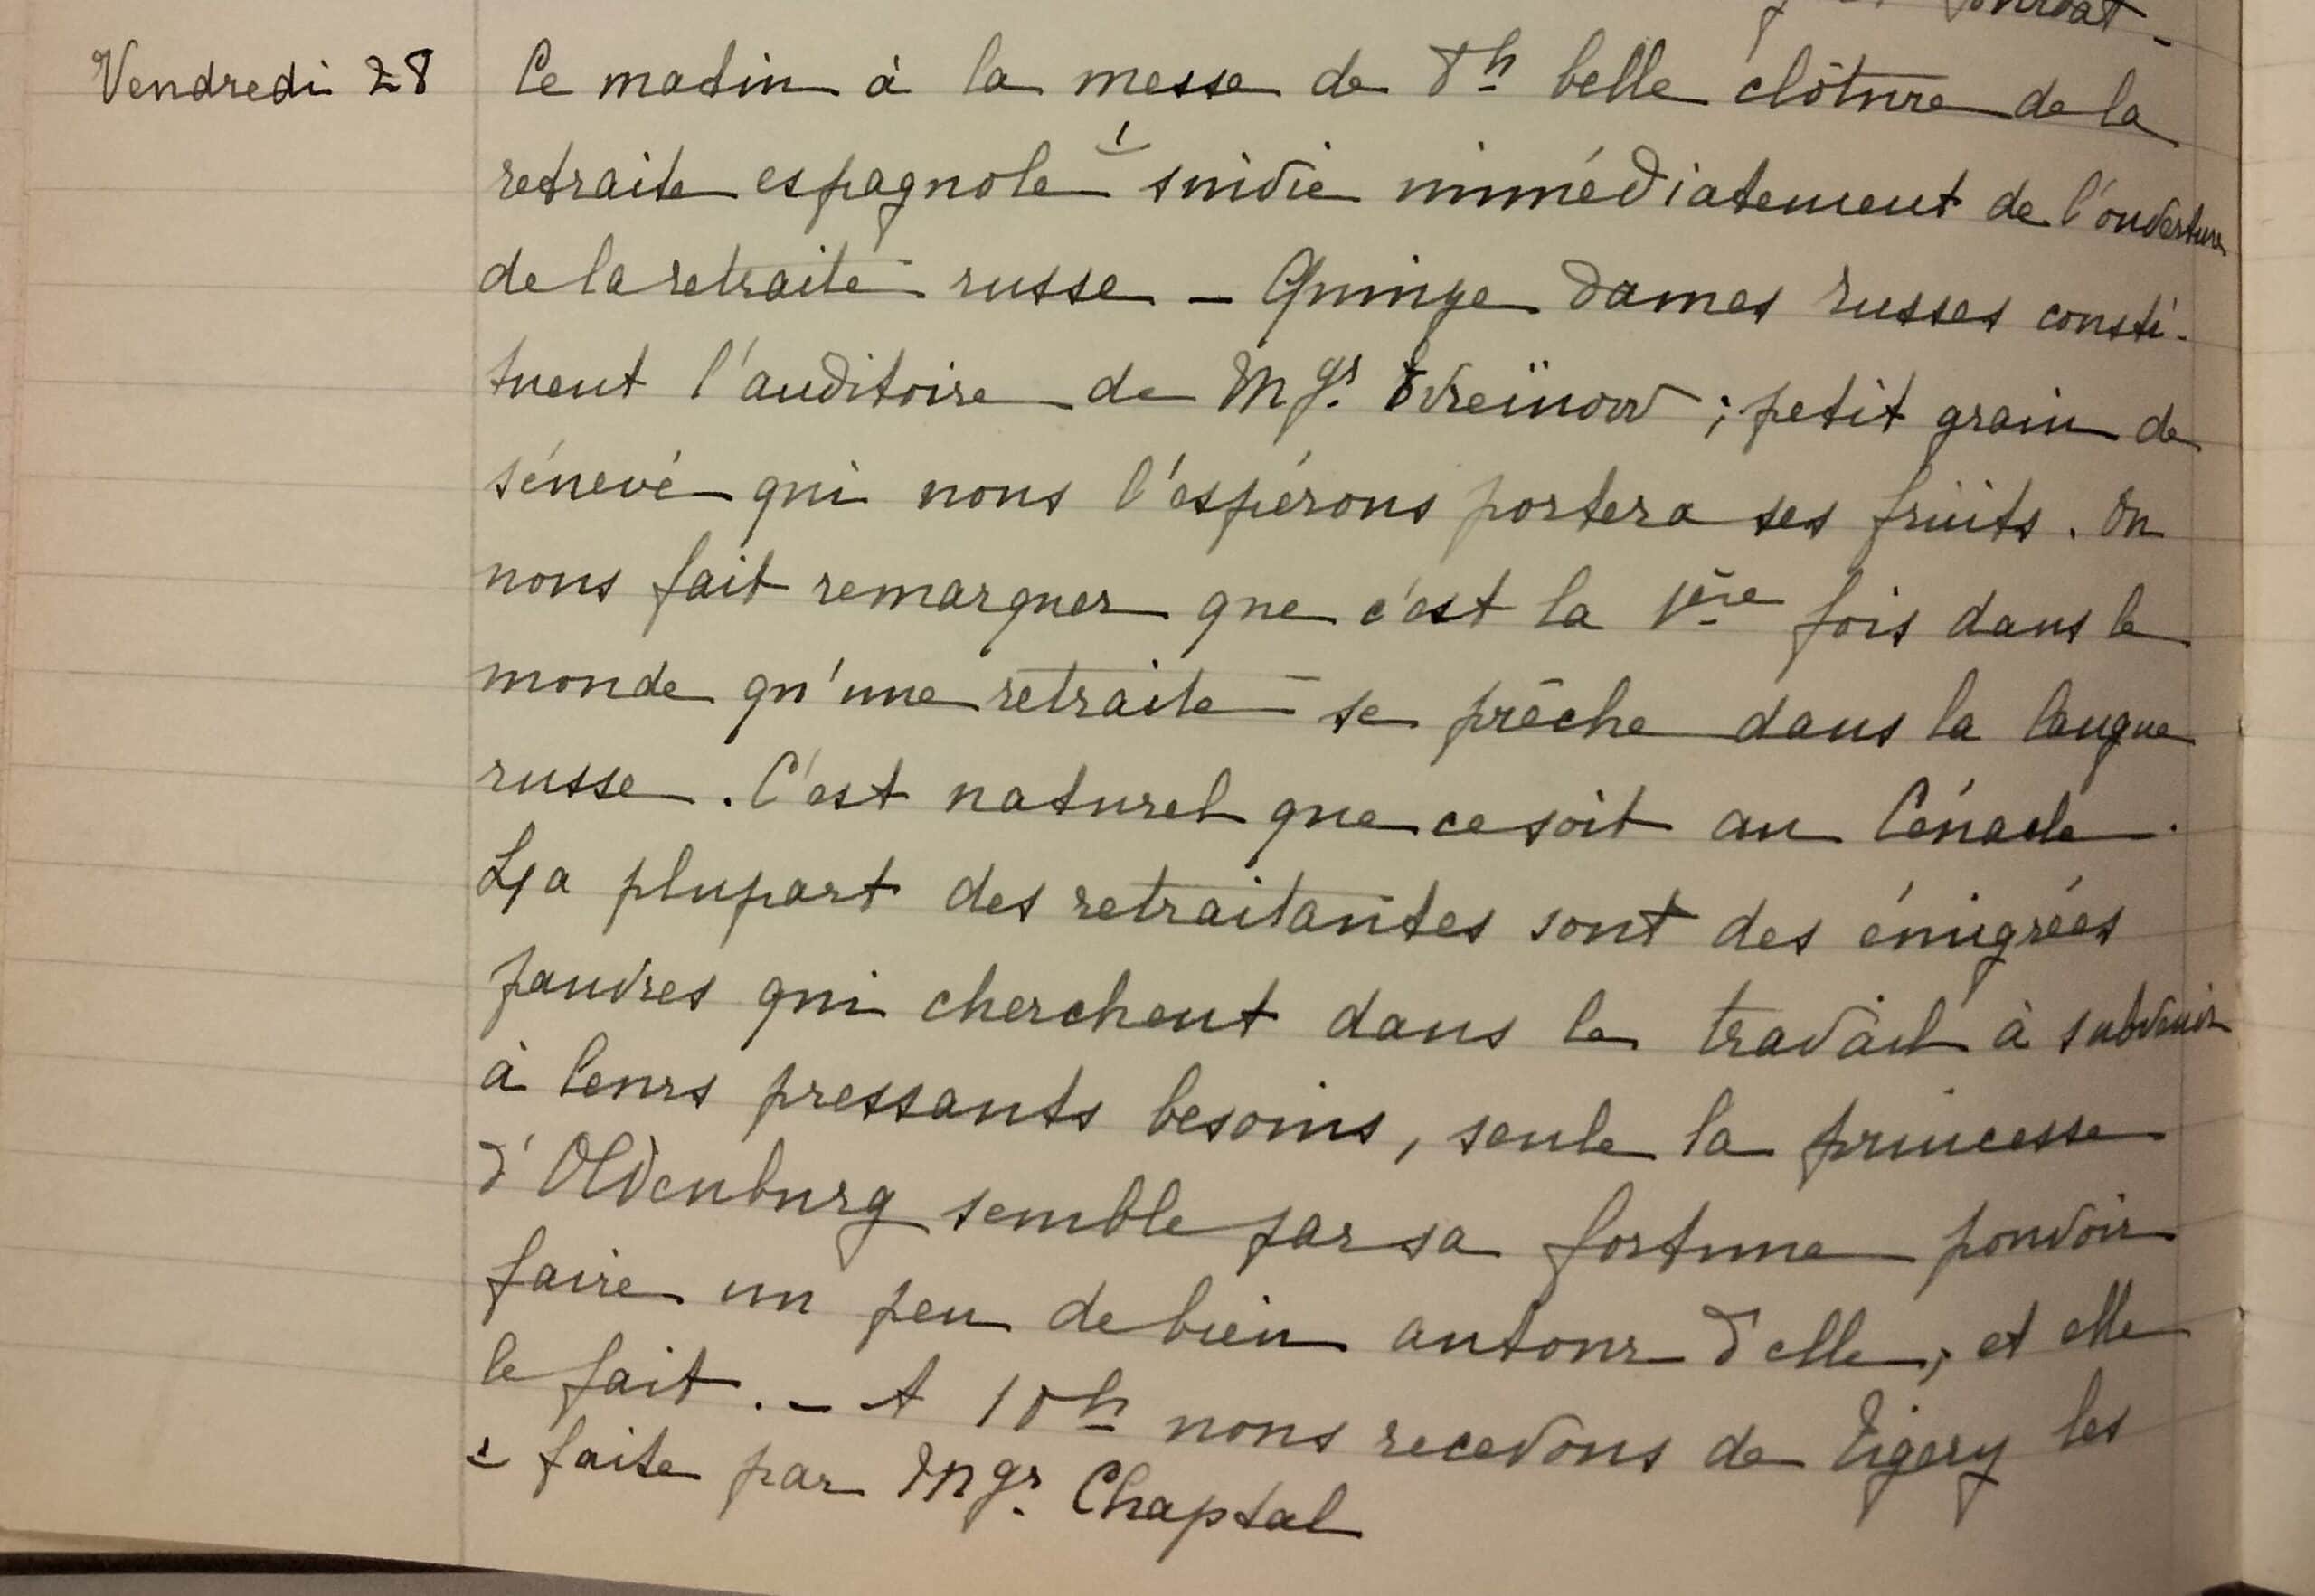 Vendredi 28
Ce matin à la messe de 8h belle clôture de la
retraite espagnole 1 suivie immédiatement de l'ouverture
de la retraite russe – Quinze dames russes consti-
tuent l'auditoire de Mgr. Evreïnow ; petit grain de
sénevé qui nous l'espérons portera ses fruits. On
nous fait remarquer que c'est la 1ère fois dans le
monde qu'une retraite se prêche dans la langue
russe. C'est naturel que ce soit au Cénacle.
La plupart des retraitantes sont des émigrées
pauvres qui cherchent dans le travail à subvenir
à leurs pressants besoins, seule la princesse
d'Oldenburg semble par sa fortune pouvoir
faire un peu de bien autour d'elle, et elle
le fait. – A 10h nous recevons de Tigery les
1 faite par Mgr. Chaptal